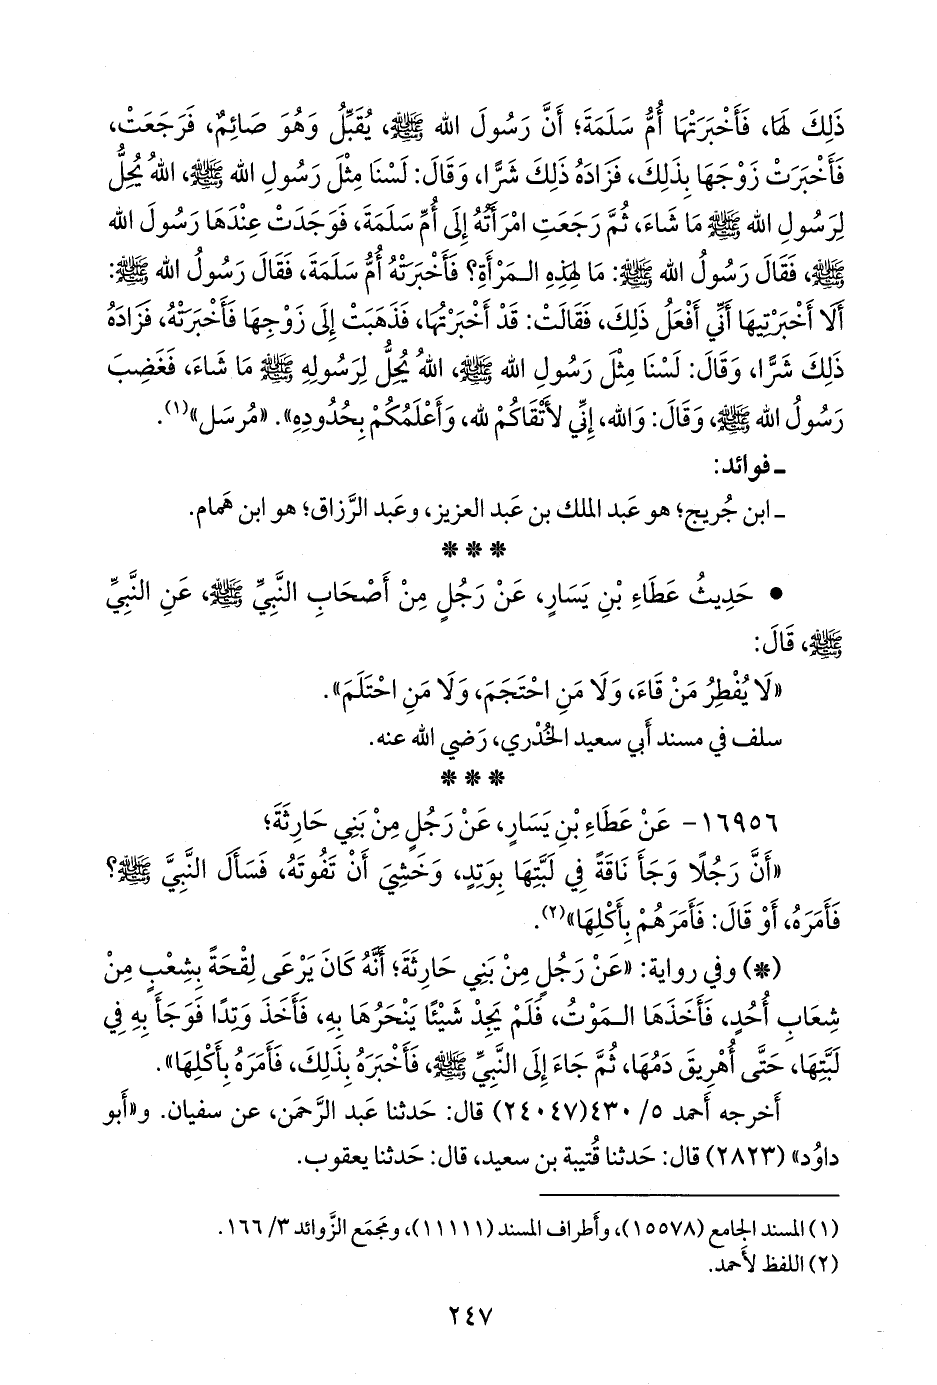 ذَلِكَ لَهَا، فَأَخْبَرَتْهَا أُمُّ سَلَمَةَ؛ أَنَّ رَسُولَ الله ﷺ، يُقَبِّلُ وَهُوَ صَائِمٌ، فَرَجَعَتْ،
فَأَخْبَرَتْ زَوْجَهَا بِذَلِكَ، فَزَادَهُ ذَلِكَ شَرًّا، وَقَالَ: لَسْنَا مِثْلَ رَسُولِ الله ﷺ، اللهُ يُحِلُّ
لِرَسُولِ الله ﷺ مَا شَاءَ، ثُمَّ رَجَعَتِ امْرَأَتُهُ إِلَى أُمِّ سَلَمَةَ، فَوَجَدَتْ عِنْدَهَا رَسُولَ الله
ﷺ، فَقَالَ رَسُولُ الله ﷺ: مَا لِهَذِهِ الْمَرْأَةِ؟ فَأَخْبَرَتْهُ أُمُّ سَلَمَةَ، فَقَالَ رَسُولُ الله ﷺ:
أَلَا أَخْبَرْتِيهَا أَنِّي أَفْعَلُ ذَلِكَ، فَقَالَتْ: قَدْ أَخْبَرْتُهَا، فَذَهَبَتْ إِلَى زَوْجِهَا فَأَخْبَرَتْهُ، فَزَادَهُ
ذَلِكَ شَرًّا، وَقَالَ: لَسْنَا مِثْلَ رَسُولِ الله ﷺ، اللهُ يُحِلُّ لِرَسُولِهِ ﷺ مَا شَاءَ، فَغَضِبَ
رَسُولُ الله ﷺ، وَقَالَ: وَالله، إِنِّي لأَتْقَاكُمْ لله، وَأَعْلَمُكُمْ بِحُدُودِهِ». «مُرسَل»(١).
ـ فوائد:
ـ ابن جُريج؛ هو عَبد الملك بن عَبد العزيز، وعَبد الرَّزاق؛ هو ابن هَمام.
***
• حَدِيثُ عَطَاءِ بْنِ يَسَارٍ، عَنْ رَجُلٍ مِنْ أَصْحَابِ النَّبِيِّ ﷺ، عَنِ النَّبِيِّ
ﷺ، قَالَ:
«لَا يُفْطِرُ مَنْ قَاءَ، وَلَا مَنِ احْتَجَمَ، وَلَا مَنِ احْتَلَمَ».
سلف في مسند أَبي سعيد الخُدْري، رَضي الله عنه.
***
١٦٩٥٦- عَنْ عَطَاءِ بْنِ يَسَارٍ، عَنْ رَجُلٍ مِنْ بَنِي حَارِثَةَ؛
«أَنَّ رَجُلًا وَجَأَ نَاقَةً فِي لَبَّتِهَا بِوَتِدٍ، وَخَشِيَ أَنْ تَفُوتَهُ، فَسَأَلَ النَّبِيَّ ﷺ؟
فَأَمَرَهُ، أَوْ قَالَ: فَأَمَرَهُمْ بِأَكْلِهَا»(٢).
(*) وفي رواية: «عَنْ رَجُلٍ مِنْ بَنِي حَارِثَةَ؛ أَنَّهُ كَانَ يَرْعَى لِقْحَةً بِشِعْبٍ مِنْ
شِعَابِ أُحُدٍ، فَأَخَذَهَا الْمَوْتُ، فَلَمْ يَجِدْ شَيْئًا يَنْحَرُهَا بِهِ، فَأَخَذَ وَتِدًا فَوَجَأَ بِهِ فِي
لَبَّتِهَا، حَتَّى أُهْرِيقَ دَمُهَا، ثُمَّ جَاءَ إِلَى النَّبِيِّ ﷺ، فَأَخْبَرَهُ بِذَلِكَ، فَأَمَرَهُ بِأَكْلِهَا».
أَخرجه أَحمد ٥/ ٤٣٠(٢٤٠٤٧) قال: حَدثنا عَبد الرَّحمَن، عن سفيان. و«أَبو
داوُد» (٢٨٢٣) قال: حَدثنا قُتيبة بن سعيد، قال: حَدثنا يعقوب.
(١) المسند الجامع (١٥٥٧٨)، وأَطراف المسند (١١١١١)، ومَجمَع الزَّوائد ٣/ ١٦٦.
(٢) اللفظ لأَحمد.
٢٤٧